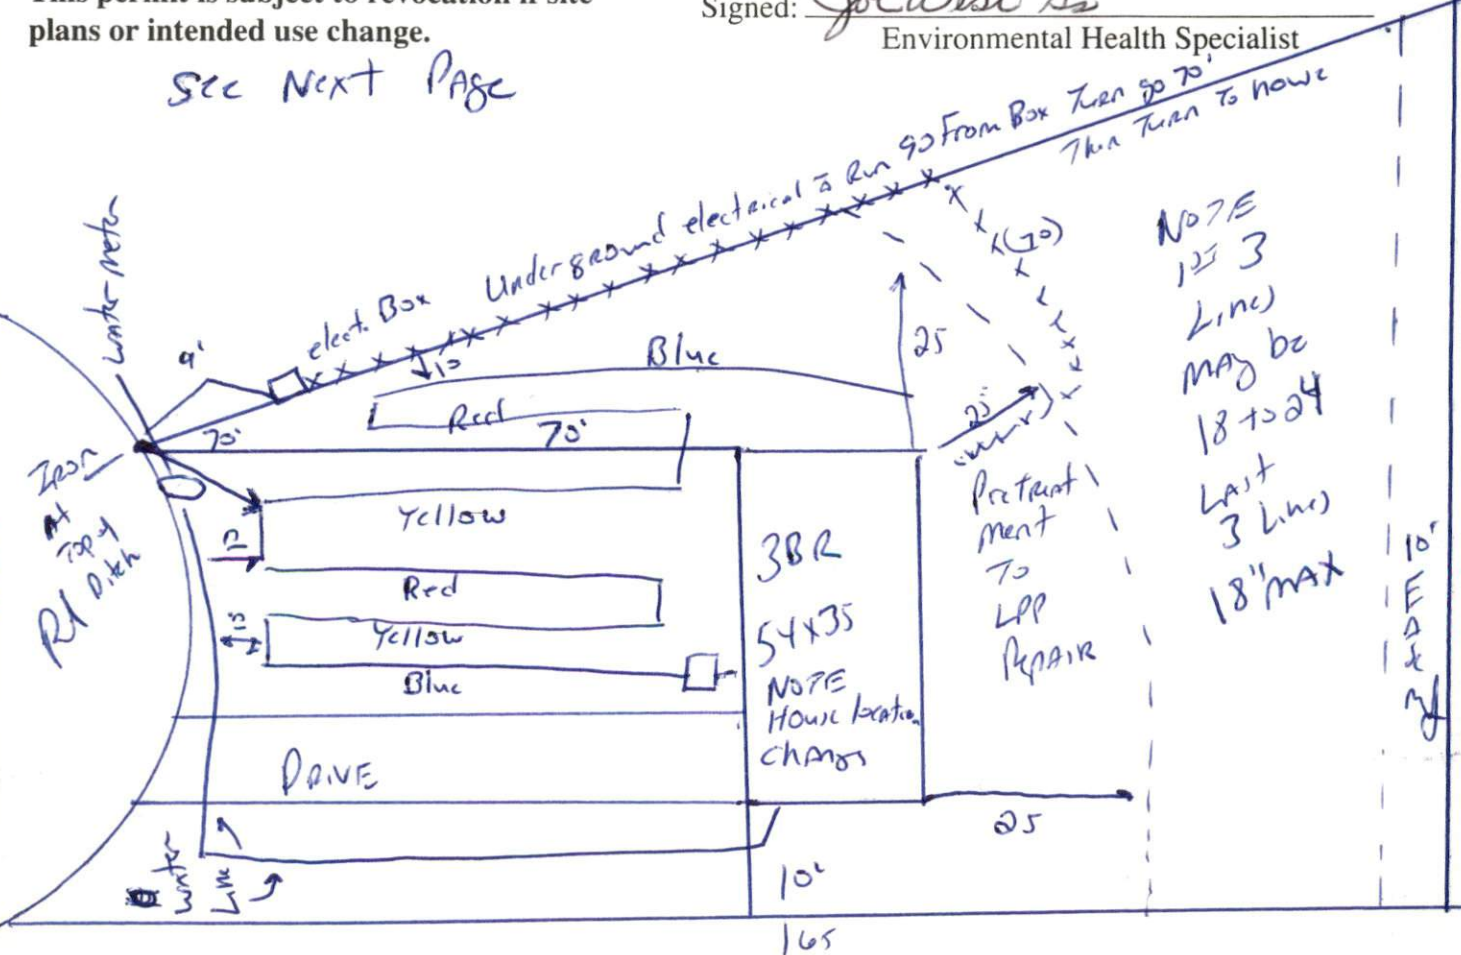 This permit is subject to revocation if site
plans or intended use change.
Signed:
Environmental Health Specialist
See Next Page
Underground electrical To Run go From Box Turn go 70'
Then Turn To house
water meter
9'
elect. Box
10
Blue
25
(70)
Red
70'
70'
Iron
At
Top of
Rd Ditch
25'
Yellow
10
Red
10
Yellow
Blue
3BR
54x35
NOTE
House location
Change
Pretreat
ment
To
LPP
Repair
NOTE
1st 3
Lines
may be
18 to 24
Last
3 Lines
18" MAX
10'
DRIVE
25
water
Line
10'
165